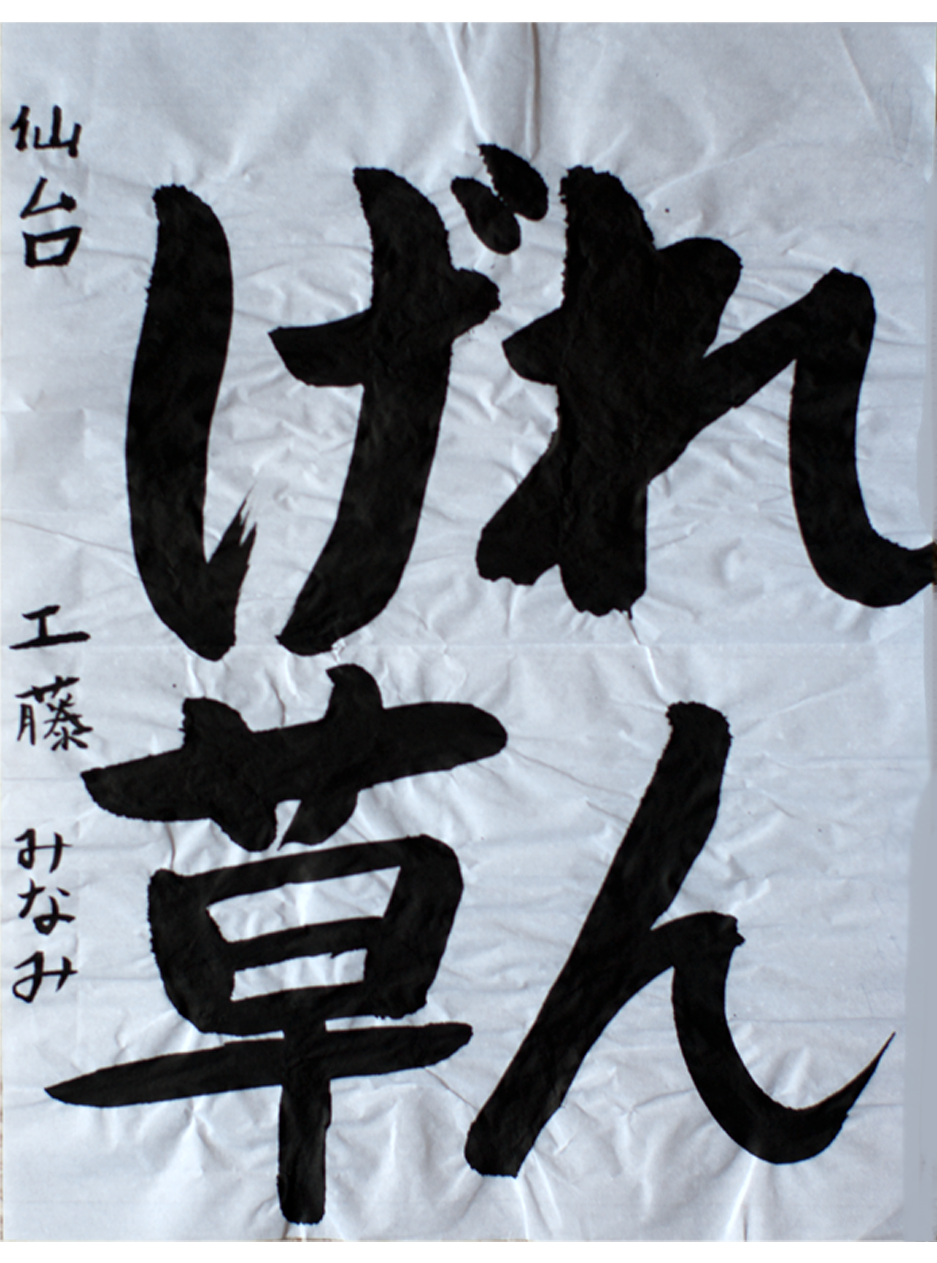 れん
げ草
仙台 工藤 みなみ